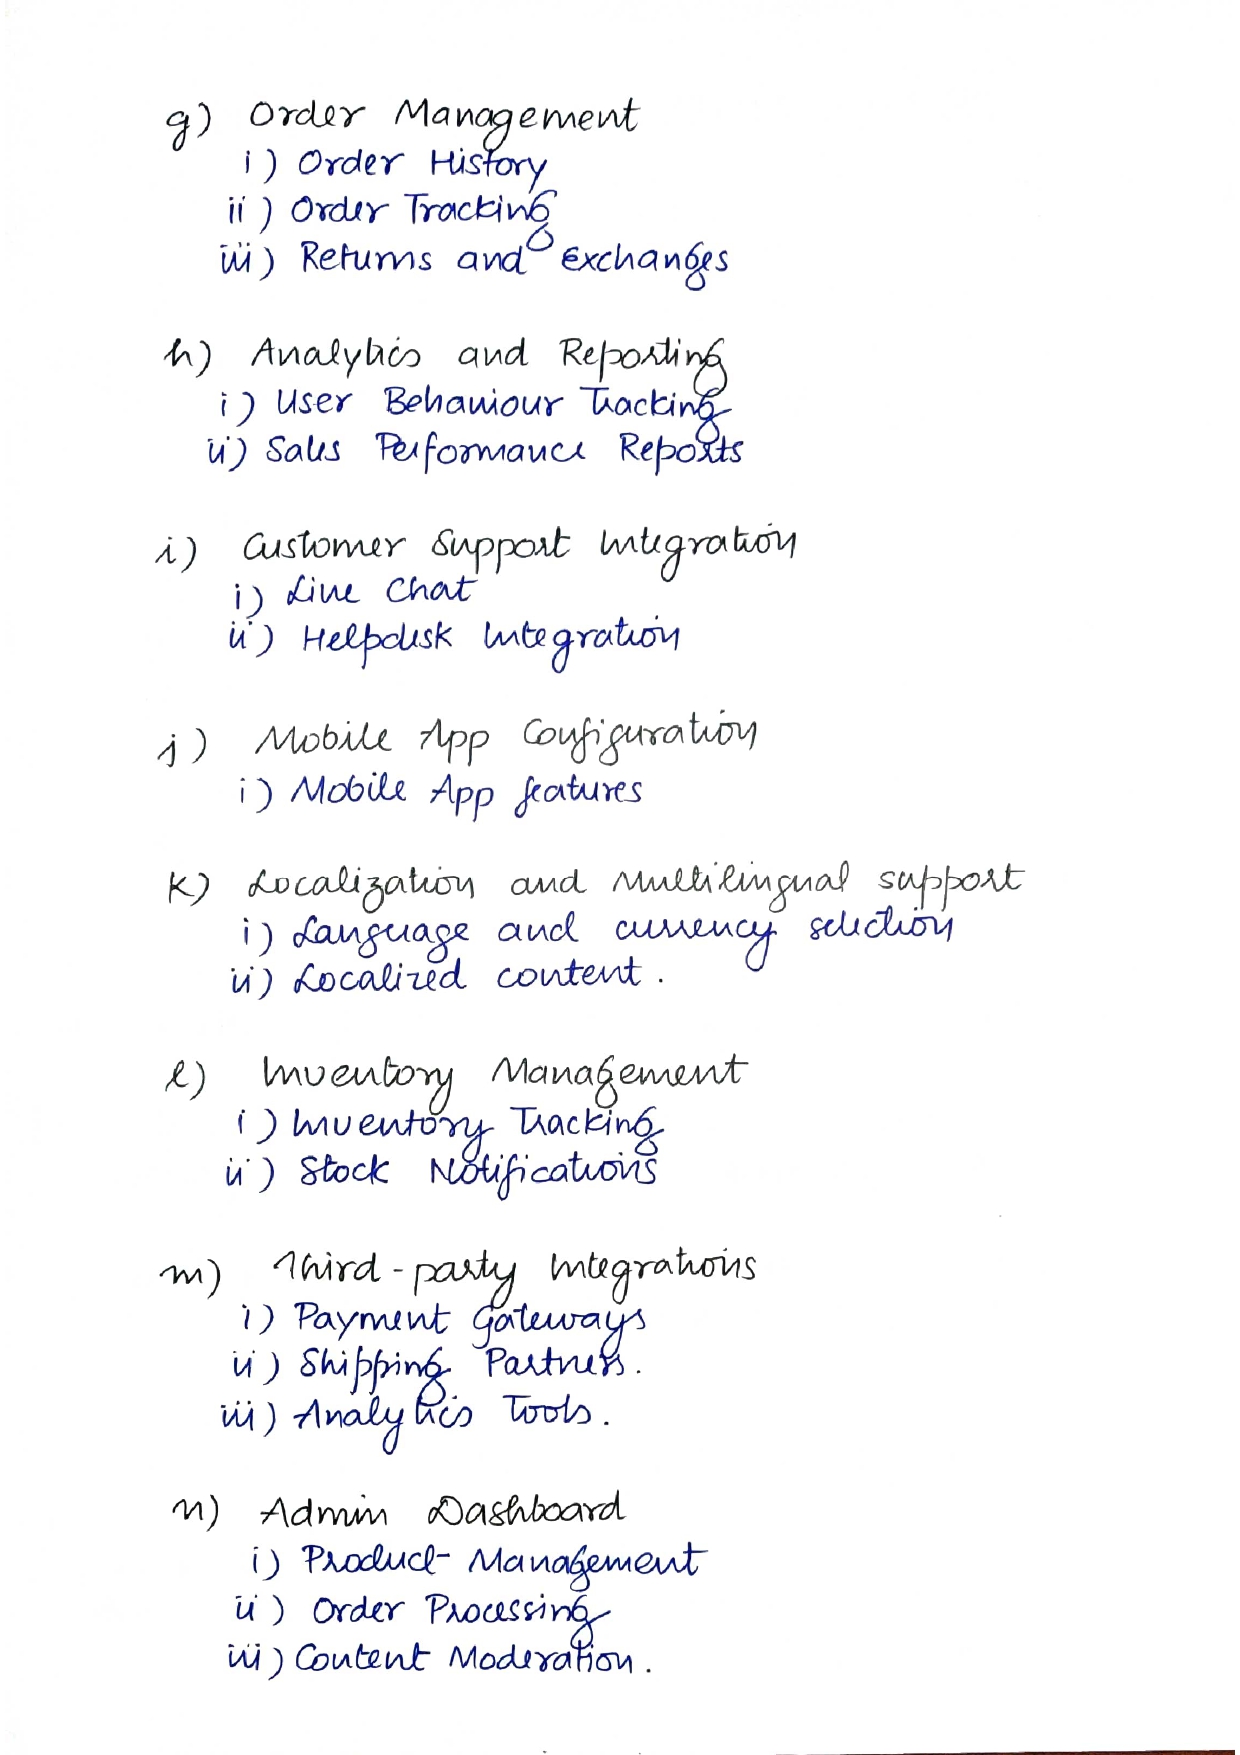 g) Order Management
i) Order History
ii) Order Tracking
iii) Returns and exchanges
h) Analytics and Reporting
i) User Behaviour Tracking
ii) Sales Performance Reports
i) Customer Support Integration
i) Live Chat
ii) Helpdesk Integration
j) Mobile App Configuration
i) Mobile App features
k) Localization and Multilingual support
i) Language and currency selection
ii) Localized content.
l) Inventory Management
i) Inventory Tracking
ii) Stock Notifications
m) Third-party Integrations
i) Payment Gateways
ii) Shipping Partners.
iii) Analytics Tools.
n) Admin Dashboard
i) Product Management
ii) Order Processing
iii) Content Moderation.